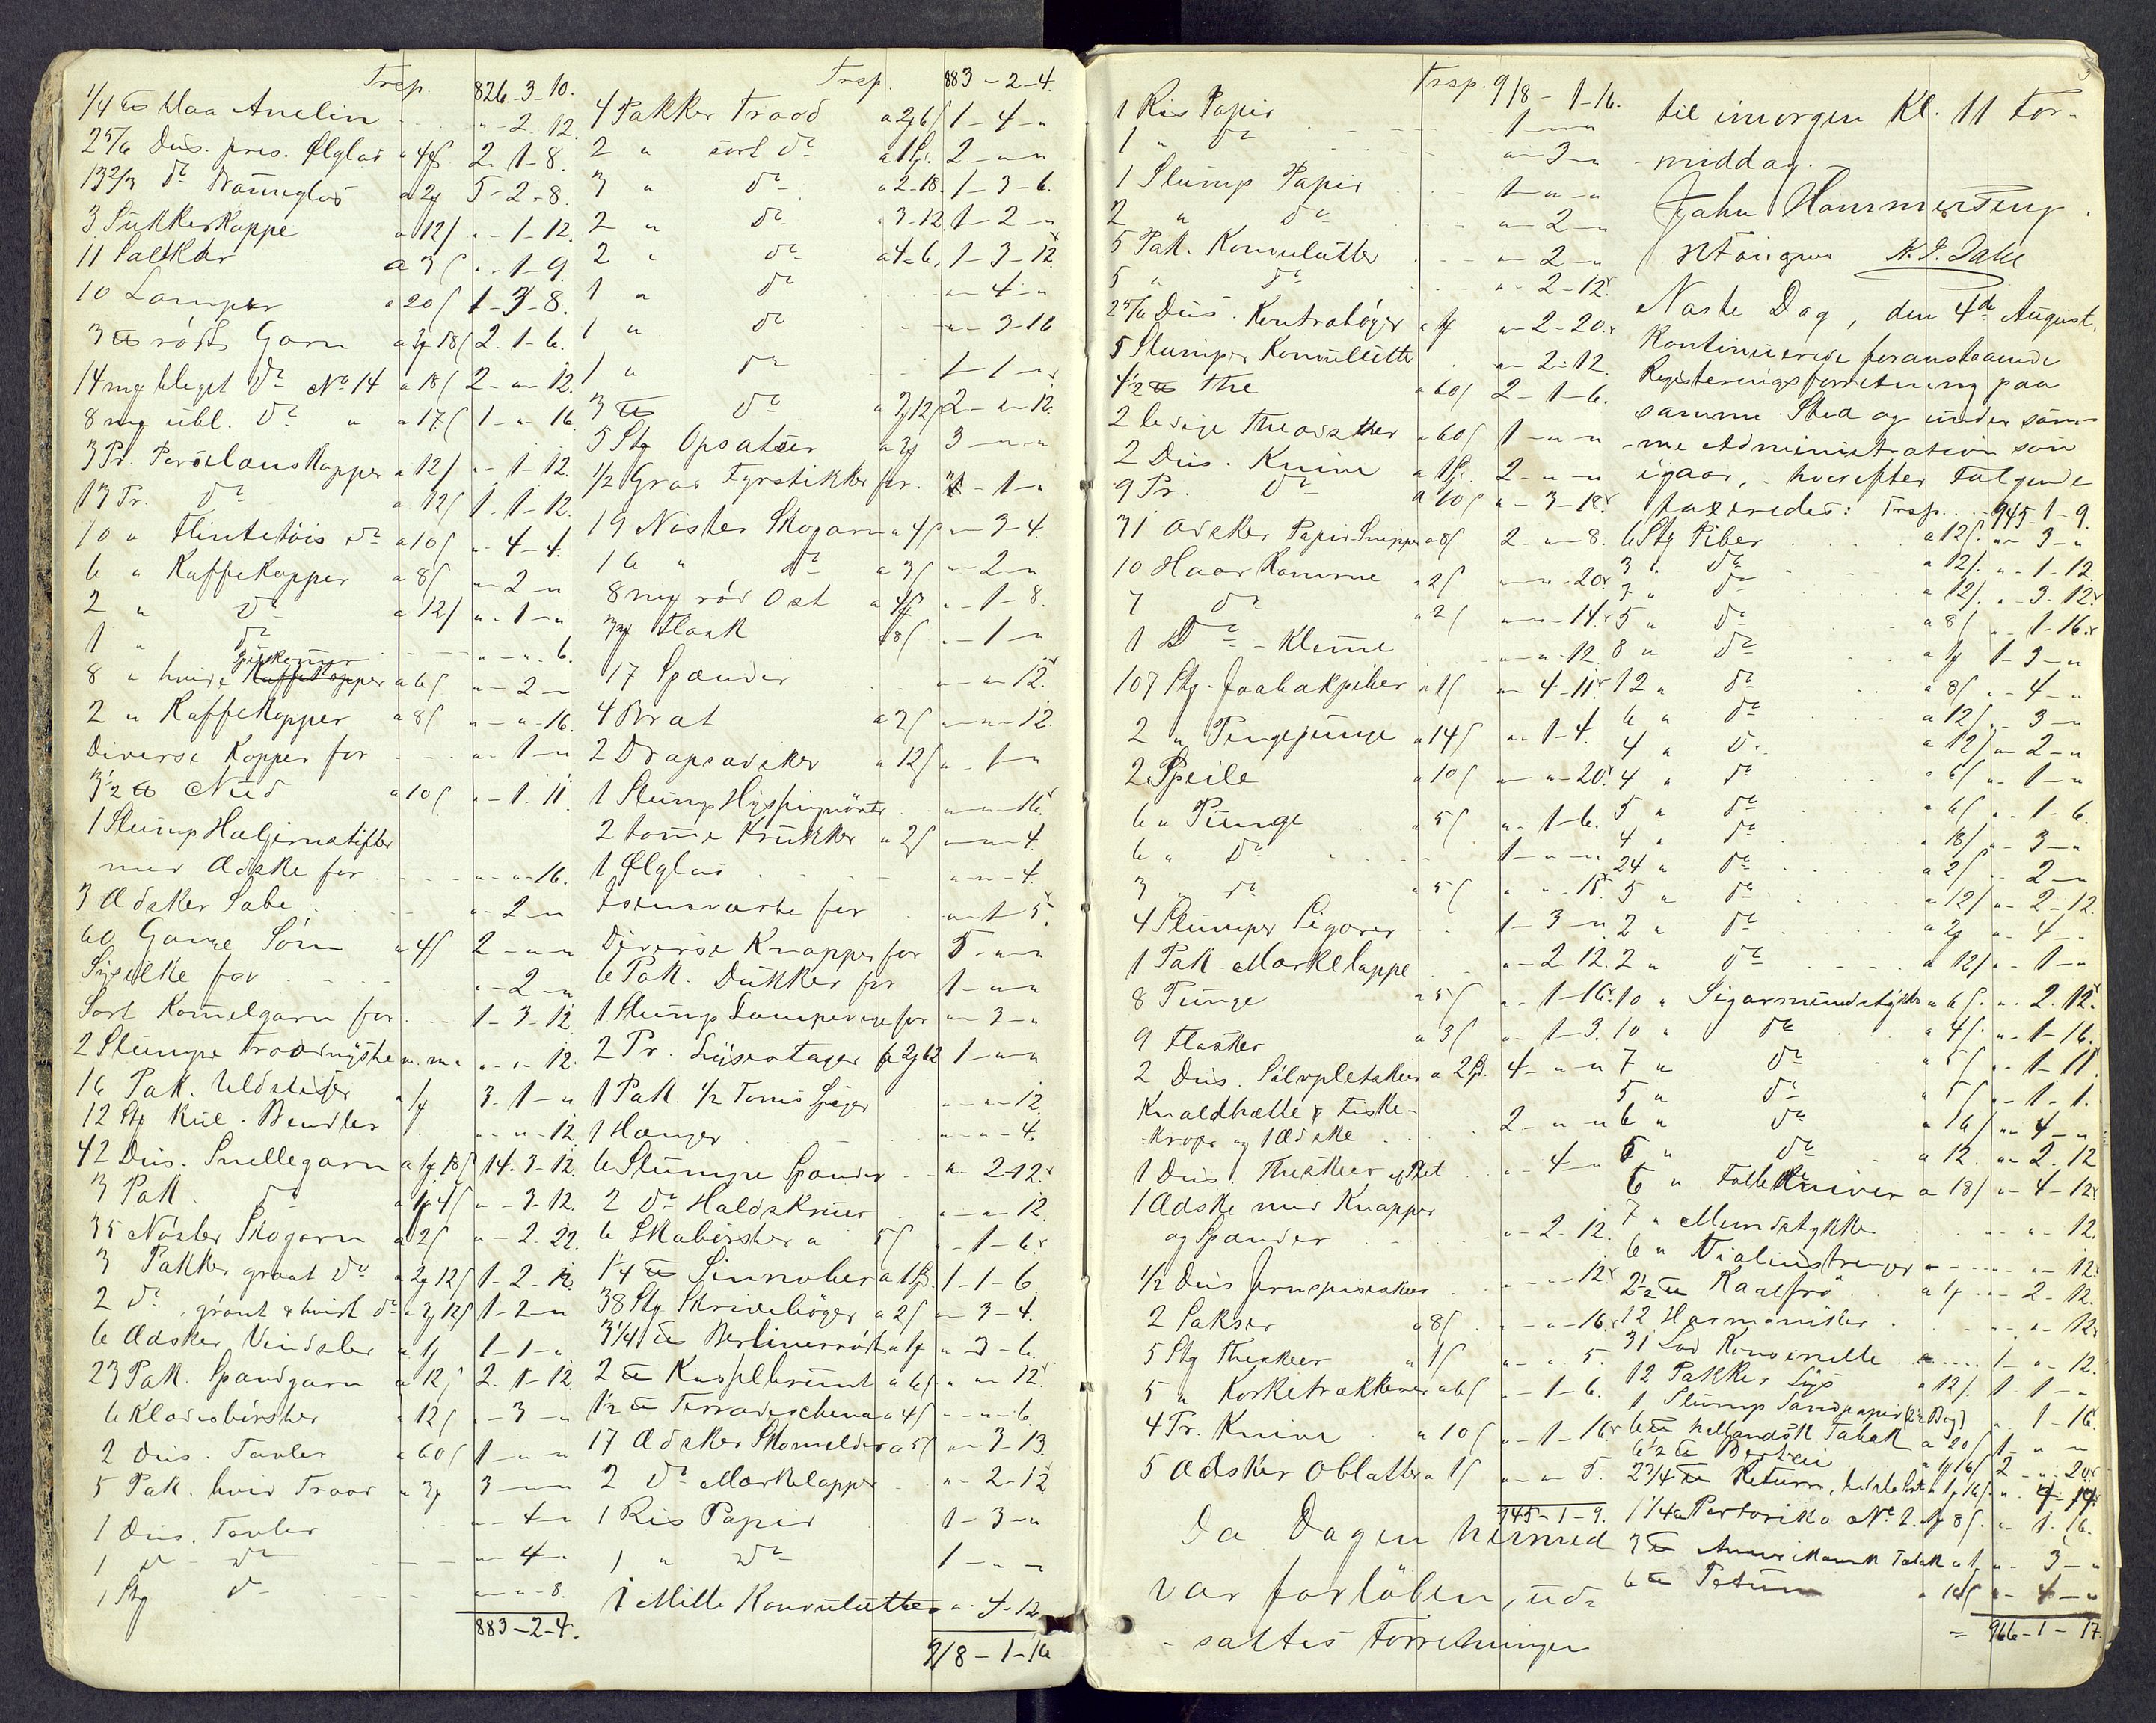 Trsp. 826-3-10.
1/4 ℔ blaa Anelin " - 2. 12.
2 5/6 Dus. pres. Ølglas a 4ƒ 2. 1-8.
13 2/3 do a 2ƒ 5-2-8.
3 Sukkerkoppe a 12/ " - 1-12.
11 Saltkar a 3ſ " - 1-9.
10 Lamper a 20ſ 1-3-8.
3 ℔ rødt Garn a 3ƒ 18ſ 2. 1-6.
14 mƒ bleget do No 14 a 18ſ 2-"-12.
8 mƒ ubl. do " a 17ſ 1-"-16.
3 Pr. Porselænskopper a 12/ " - 1-12.
13 Pr. do a 12ſ 1. 1-12.
10 " Flintetøis do a 10ſ " 4-4.
6 " Kaffekopper a 8ſ " 2-"
2 " do a 12/ " 1-"
1 " do " - " 6.
8 " hvide Kaffekopper a 6ſ " 2-"
2 " Kaffekopper a 8ſ " - " - 16.
Diverse Kopper for " 1-"
3 1/2 ℔ a 10ſ " - 1. 11.
1 Slump
med Ædske for " - " - 16.
3 Ædsker Sæbe " 2-"
60 Gange Søm a 4ſ 2-"-"
Sysilke for " - 2-"
Sort Kamelgarn for 1-3-12.
2 Slumpe m. m. " - " 12.
16 Pak. Uldstifter a 1ƒ 3. 1-"
12 Stƒ Kul. Bendler " - " - 12.
42 Dus. Snellegarn a 1ƒ 18ſ 14-3-12.
3 Pak. do a 1ƒ 4ſ " - 3-12.
35 Nøster Skogarn a 2ſ " - 2. 22.
3 Pakker graat do a 2ƒ 12ſ 1-2-12.
2 do, grønt & hvidt do a 3ƒ 12ſ 1-2-"
6 Ædsker Vindsler a 1ƒ 1-1-"
23 Pak. Spandgarn a 12ſ 2. 1-12.
6 Klædesbørster a 12ſ " - 3-"
2 Dus. Tavler a 60ſ 1-"-"
5 Pak. hvid Traad a 3ƒ 3-"-"
1 Dus. Tavler " 4-"
1 do do " 4-"
1 Stƒ do " - " - 8.
883-2-4.
Trsp. 883-2-4.
4 Pakker Traad a 2ƒ 6ſ 1-4-"
2 " sort do 2-"-"
3 " do a 2-18. 1-3-6.
2 " do a 3-12 1-2-"
2 " do a 4-6. 1-3-12.
1 " do " 4-"
1 " do " 3-16
1 " do 1-1-"
3 ℔ do a 3ƒ 12ſ 2-"-12.
5 Stƒ Opsatser a 3ƒ 3-"-"
1/2 Gros Fyrstikker for - 1-"
19 Nøster Skogarn a 4ſ " 3-4.
16 " do a 3ſ " 2-"
8 mƒ rød Ost a 4ſ " - 1-8.
3 mƒ Flaak a 8ſ " - 1-"
17 Spænder " - " 12.
4 Brat a 3ſ " - " - 12.
2 Drapsædsker a 12ſ " - 1-"
1 Slump " - " 16.
2 tomme Krukker a 2ſ " - " - 4.
1 Ølglas " - " - 4.
Isenvarte for " 1-5.
Diverse Knapper for 5-"-"
6 Pak. Dukker for 1-"-"
1 Slump Lampevæge for " 3-"
2 Pr. Lysestager a 2ƒ 12 1-"-"
1 Pak. 1/2 Toms Spiger " - " - 12.
1 Hænger " - " - 4.
6 Slumpe Spænder " 2-12.
2 do Haldskruer " - " 12.
6 Skobørster a 5ſ " - 1-6.
1/4 ℔ Sinnober a 1 1-1-6.
38 Stƒ Skrivebøger a 2ſ " 3-4.
3 1/4 ℔ Berlinerrødt a 1ƒ " - 3-6.
2 ℔ Kasselbrunt a 6ſ " " 12.
1 1/2 ℔ Terradeschena a 4ſ " - " - 6.
17 Ædsker a 5ſ " 3-13.
2 do Mærkelapper " - 2-12.
1 Ris Papir 1-3-"
1 " do 1-"-"
1 Mille Konvulutter " - 4-12.
918-1-16
Trsp. 918-1-16.
1 Ris Papir 1-"-"
1 " do " - 3-"
1 Slump Papir 1-"-"
2 " do " 2-"
5 Pak. Konvulutter " 2-"
5 " do " - 2-12.
2 5/6 Dus. Kontrabøger a 1ƒ " - 2-20.
5 Slumper Konvulutter " 2. 12.
4 1/2 ℔ The a 60ſ 2-1-6.
2 ledige Theædsker a 60ſ 1-"-"
2 Dus. Knive a 1 2-"-"
9 Pr. do a 10ſ " - 3-18.
31 Ædsker Papir-Snipper a 8ſ 2-"-8.
10 Haarkamme a 2ſ " - " - 20.
7 do a 2ſ " - " - 14.
1 do-Klemme " - " - 12
107 Stƒ. a 1ſ " 4-11.
2 " Pengepunge a 14ſ " 1-4.
2 Speile a 10ſ " - " - 20.
6 " Punge a 5ſ " 1-6.
6 " do 1-"-"
3 " do a 5ſ " - " - 15.
4 Slumper Sigarer 1-3-"
1 Pak. Mærkelappe " - 2 12.
8 Punge a 5ſ " - 1-16.
9 Flasker a 3ſ " - 1-3.
2 Dus. Sølvpletskeer a 2 4-"-"
Knaldhætte & Fiske-
-kroge og 1 Ædske 2-"-"
1 Dus. Theskeer af Plet " - 4-"
1 Ædske med Knapper
og Spænder " - 2-12.
1/2 Dus Jernspiseskeer " - " - 12.
2 Sakser a 8ſ " - " - 16.
5 Stƒ Theskeer a 1ſ " - " 5.
5 " Korketrækkere a 6ſ " - 1-6.
4 Pr. Knive a 10ſ " - 1-16.
5 Ædsker Oblatter a 1ſ " - " 5.
945-1-9.
Da Dagen hermed
var forløben, ud-
-sattes Forretningen
til imorgen Kl. 11 For-
-middag.-
Jahn Hammerseng.
Næste Dag, den 4de August,
kontinuerede foranstaaende
Registeringsforretning paa
samme Sted og under sam-
-me Administration som
igaar, - hvorefter Følgende
taxeredes: Trsp. 945-1-9.
6 Stƒ Piber a 12ſ. " 3-"
3 " do a 12/. " - 1-12.
7 " do a 12/. " - 3-12.
5 " do a 8ſ " 1-16.
8 " do a 1ƒ 1-3-"
12 " do a 8ſ " - 4-"
6 " do a 12/ " - 3-"
4 " do a 12/ " 2-"
4 " do a 6ſ " 1-"
5 " do a 6ſ " - 1-6.
4 " do a 18/ " 3-"
24 " do a 2ſ " 2-"
5 " do a 12/ " - 2-12.
2 " do a 2ƒ " - 4-"
2 " do a 12/ " - 1-"
10 " Sigarmundstykker a 6ſ. " - 2. 12.
10 " do a 4ſ. " - 1-16.
7 " do a 5ſ " - 1-11
5 " do a 5ſ " - 1-1.
6 " do a 16/ " 4-"
5 " do a 12. " - 2. 12
6 " Follekniver a 18/ " - 4-12
7 " Mundstykke " - 12.
6 " Violinstrenger " - 12.
2 1/2 ℔ Kaalfrø a 1ƒ " - 2-12.
12 Harmoniker " - 12.
31 Lod Konsenelle 1-"-12.
12 Pakker Lys a 12/. 1. 1-"
1 Slump Sandpapir (2 1/2 Bog) " 1-16.
6 ℔ hollandsk Tabak a 20ſ 1-"-"
6 1/2 ℔ a 1ƒ 16ſ 2-"-20.
2 3/4 ℔ Petum,
1 1/4 ℔ Portoriko No 2. a 1ƒ 8ſ. " 1-16.
3 ℔ Amerikansk Tobak a 1ƒ " - 3-"
6 ℔ Petum a 16ſ " - 4-"
= 966-1-17.